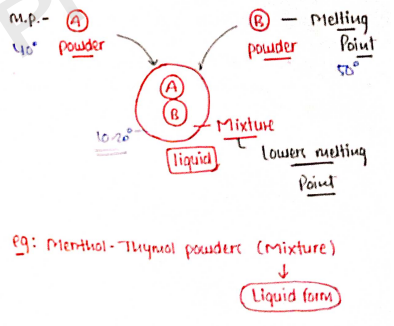 M.P.- A
40°
powder
B — Melting
powder
Point
50°
A
B
10-20°
Mixture
liquid
Lowers melting
Point
eg: Menthol-Thymol powders (Mixture)
Liquid form